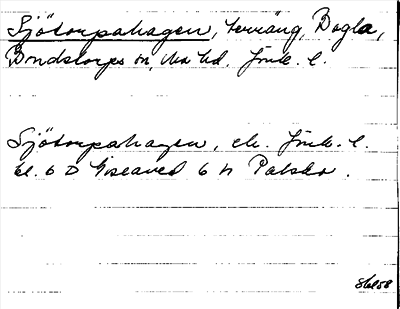 Sjötorpahagen, terräng, Bogla,
Bondstorps sn, Mo hd. Jönk. l.
Sjötorpahagen, ek. Jönk. l.
bl. 6 D Gislaved 6 h Palsbo.